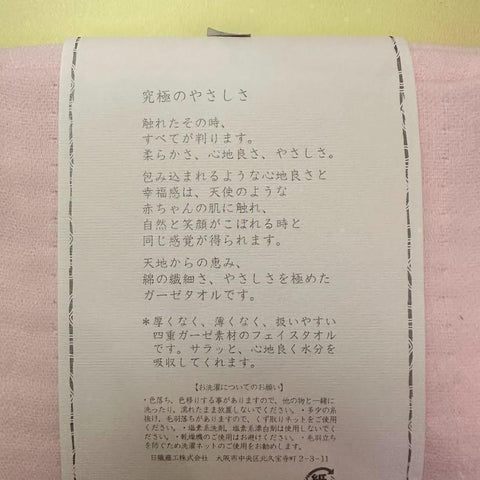 究極のやさしさ
触れたその時、
すべてが判ります。
柔らかさ、心地良さ、やさしさ。
包み込まれるような心地良さと
幸福感は、天使のような
赤ちゃんの肌に触れ、
自然と笑顔がこぼれる時と
同じ感覚が得られます。
天地からの恵み、
綿の繊細さ、やさしさを極めた
ガーゼタオルです。
＊厚くなく、薄くなく、扱いやすい
四重ガーゼ素材のフェイスタオル
です。サラッと、心地良く水分を
吸収してくれます。
【お洗濯についてのお願い】
・色落ち、色移りする事がありますので、他の物と一緒に
洗ったり、濡れたまま放置しないでください。・多少の糸
抜け、毛羽落ちがありますので、くず取りネットをご使用
ください。・塩素系洗剤、塩素系漂白剤は使用しないでく
ださい。・乾燥機のご使用はお避けください。・毛羽立ち
を防ぐため洗濯ネットのご使用をおすすめします。
日繊商工株式会社 大阪市中央区北久宝寺町2-3-11
紙